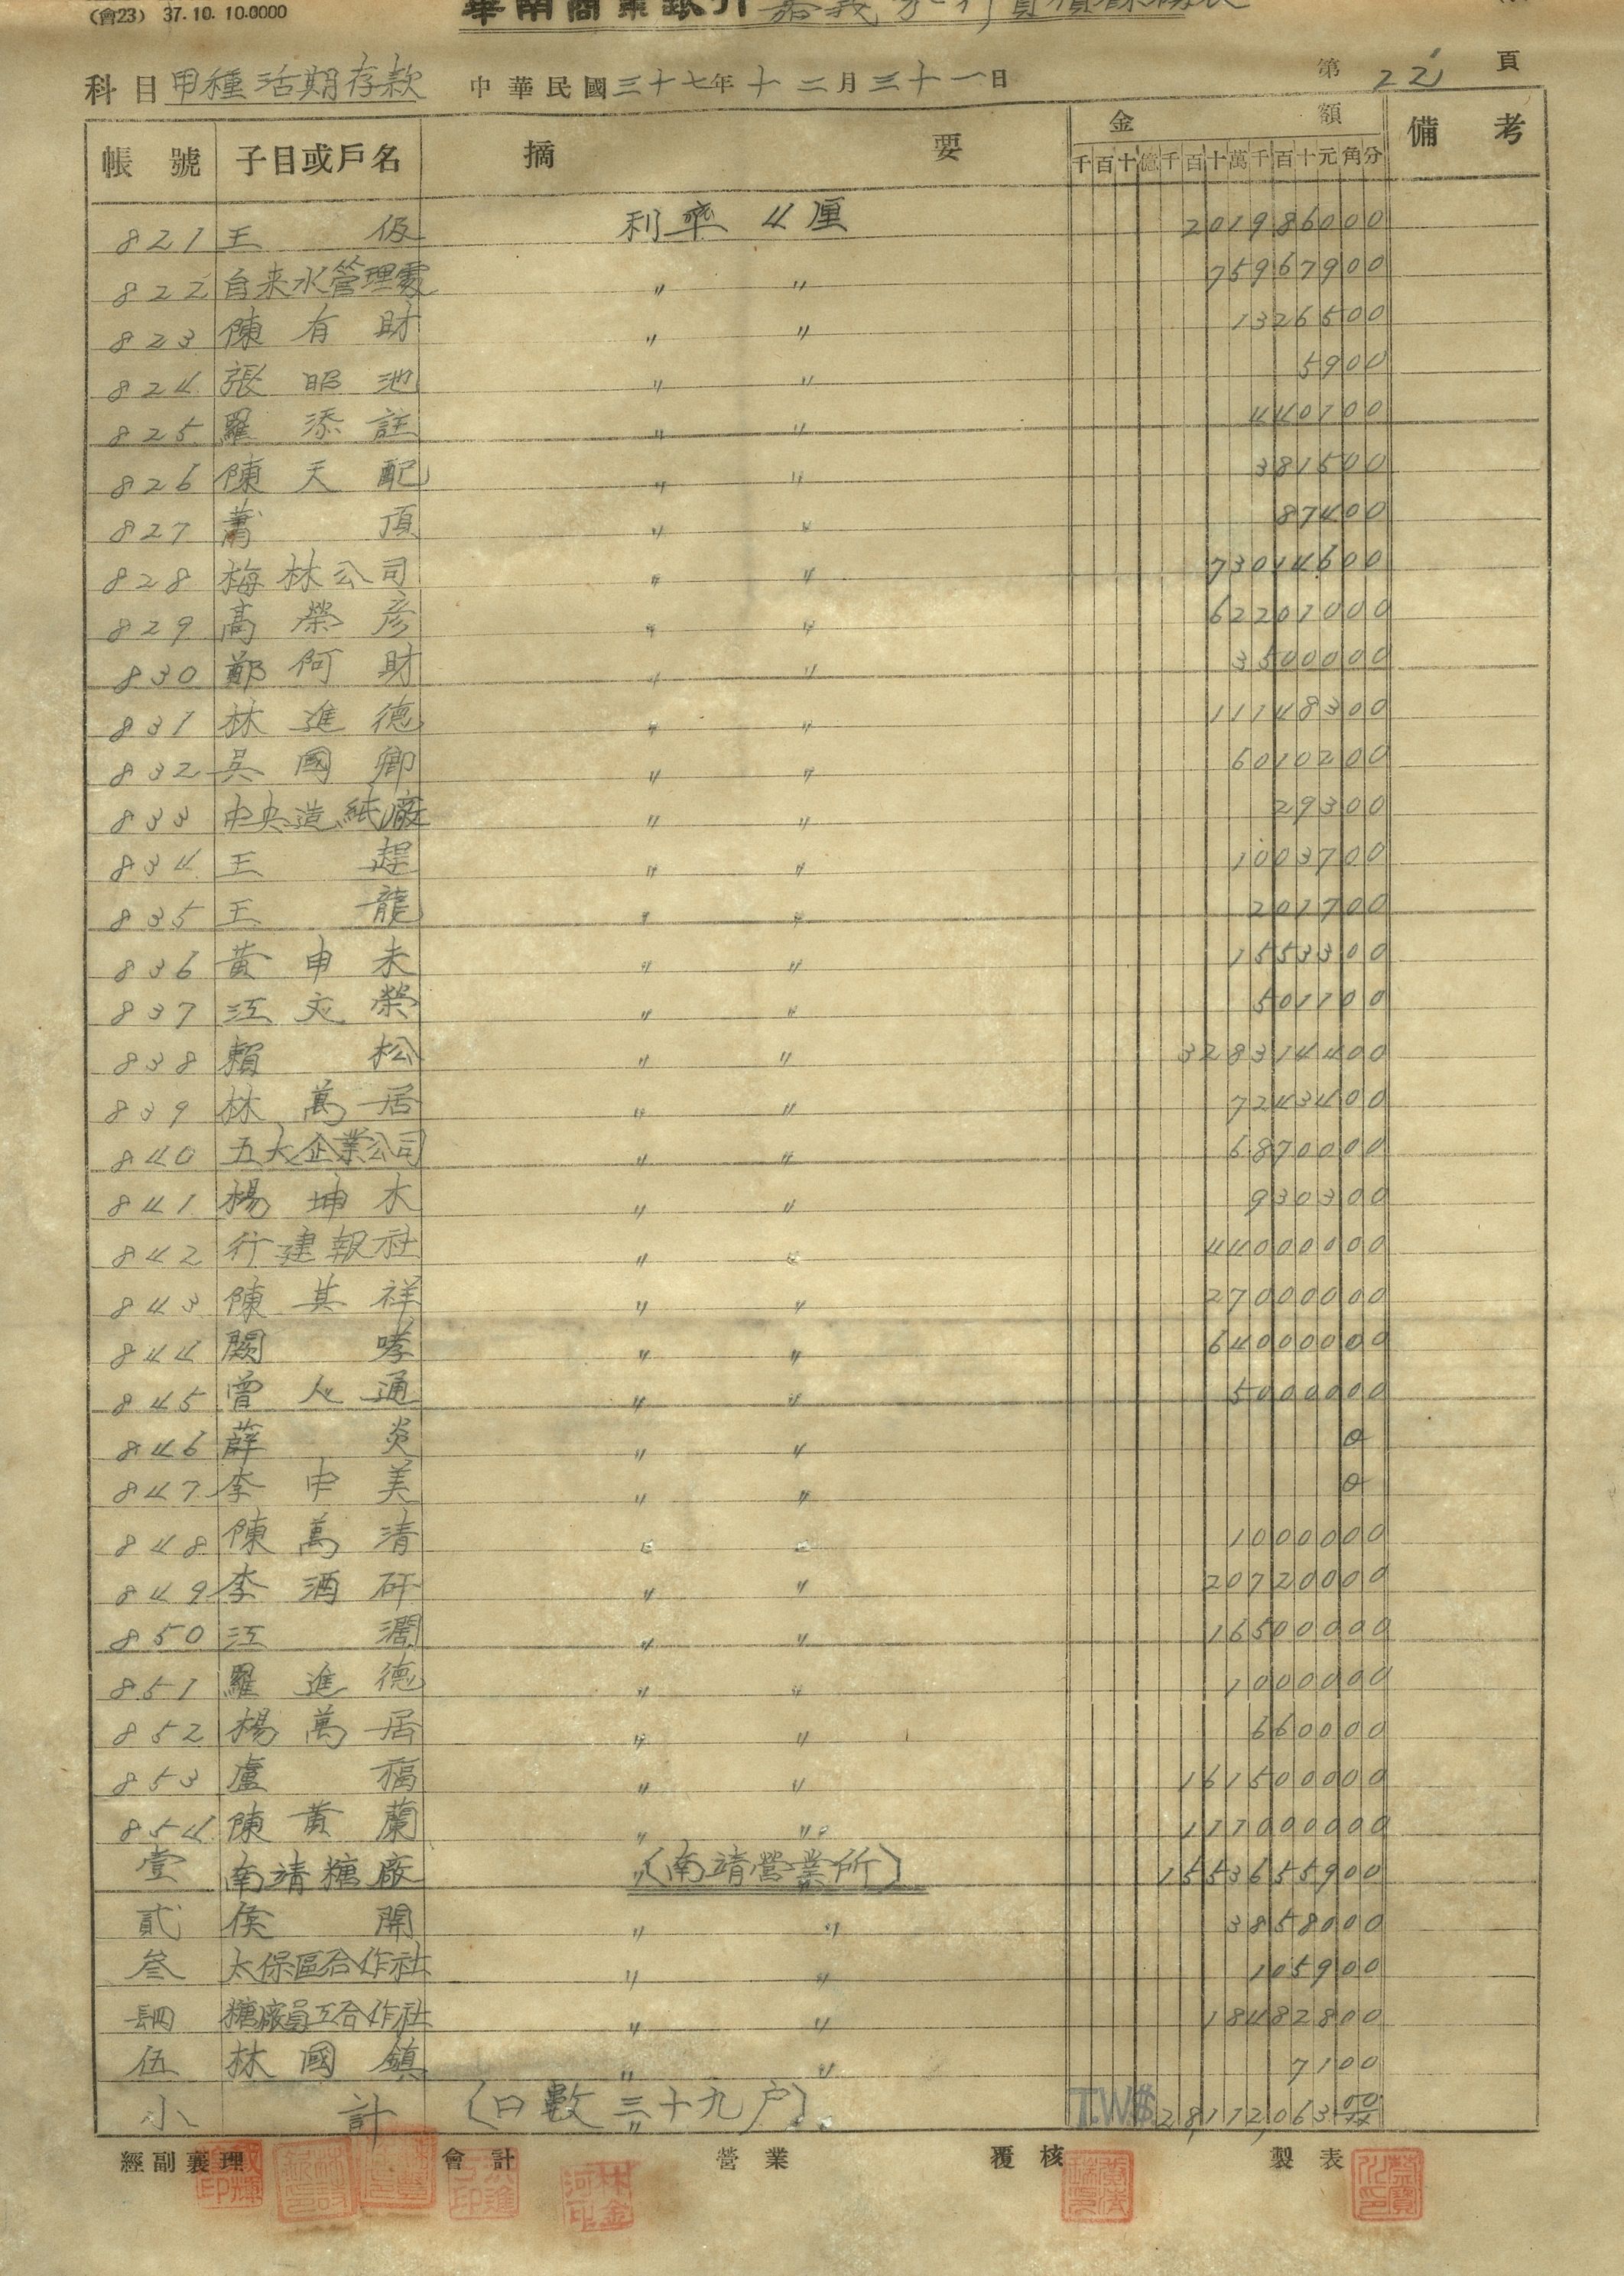 (會23) 37.10.10.0000
華南商業銀行 嘉義分行
科目 甲種活期存款 中華民國三十七年十二月三十一日 第 22 頁
帳號 子目或戶名 摘要 金額 備考
千百十億千百十萬千百十元角分
821 王 伋 利率 4 厘 201986000
822 自来水管理處 〃 〃 75967900
823 陳有財 〃 〃 1326500
824 張昭池 〃 〃 5900
825 羅添註 〃 〃 440100
826 陳天配 〃 〃 381500
827 蕭頂 〃 〃 87400
828 梅林公司 〃 〃 73014600
829 高榮彥 〃 〃 62201000
830 鄭阿財 〃 〃 3500000
831 林進德 〃 〃 11148300
832 吳國卿 〃 〃 6010200
833 中央造紙廠 〃 〃 29300
834 王 〃 〃 1003700
835 王龍 〃 〃 201700
836 黃申未 〃 〃 1553300
837 江文榮 〃 〃 501100
838 賴松 〃 〃 328314400
839 林萬居 〃 〃 7243400
840 五大企業公司 〃 〃 6870000
841 楊坤木 〃 〃 930300
842 行建報社 〃 〃 44000000
843 陳其祥 〃 〃 27000000
844 闕孝 〃 〃 64000000
845 曾人通 〃 〃 5000000
846 薛炎 〃 〃 0
847 李申美 〃 〃 0
848 陳萬清 〃 〃 1000000
849 李酒研 〃 〃 20720000
850 江濶 〃 〃 16500000
851 羅進德 〃 〃 1000000
852 楊萬居 〃 〃 660000
853 盧福 〃 〃 161500000
854 陳黃蘭 〃 〃 117000000
壹 南靖糖廠 〃(南靖營業所)〃 1553655900
貳 侯開 〃 〃 3858000
叁 太保區合作社 〃 〃 105900
肆 糖廠員工合作社 〃 〃 18482800
伍 林國鎮 〃 〃 7100
小計 (口數三十九户) T.W$ 28,112,063.00
經副襄理 會計 營業 覆核 製表